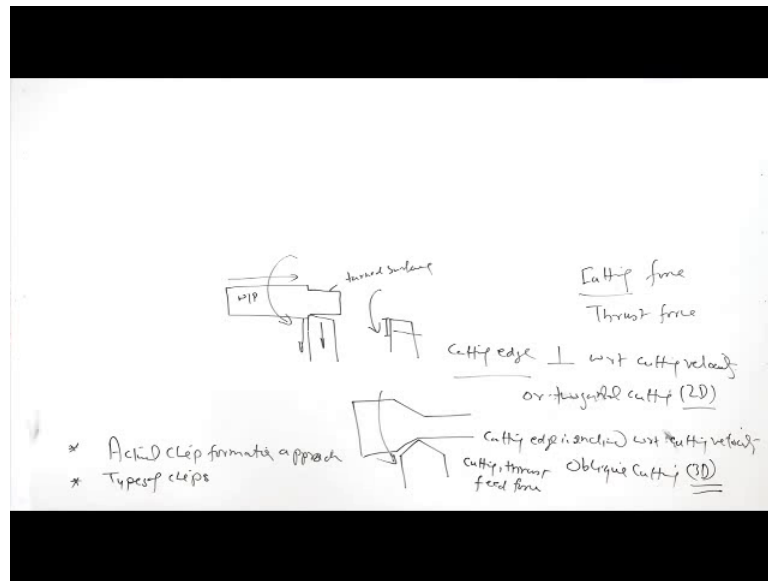 turned surface
W/P
Cutting force
Thrust force
Cutting edge ⊥ wrt cutting velocity
orthogonal cutting (2D)
Cutting edge is inclined wrt cutting velocity
Oblique Cutting (3D)
cutting, thrust
feed force
* Actual chip formation approach
* Types of chips